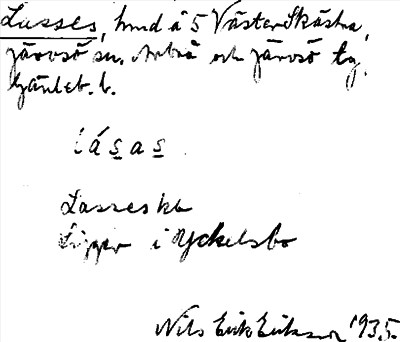 Lasses, hmd å 5 Väster Skästra,
Järvsö sn, Arbrå och Järvsö tg,
Gävleb. l.
lás̲as̲
Lasses kb
Ligger i Yckelsbo
Nils Erik Eriksson 1935.